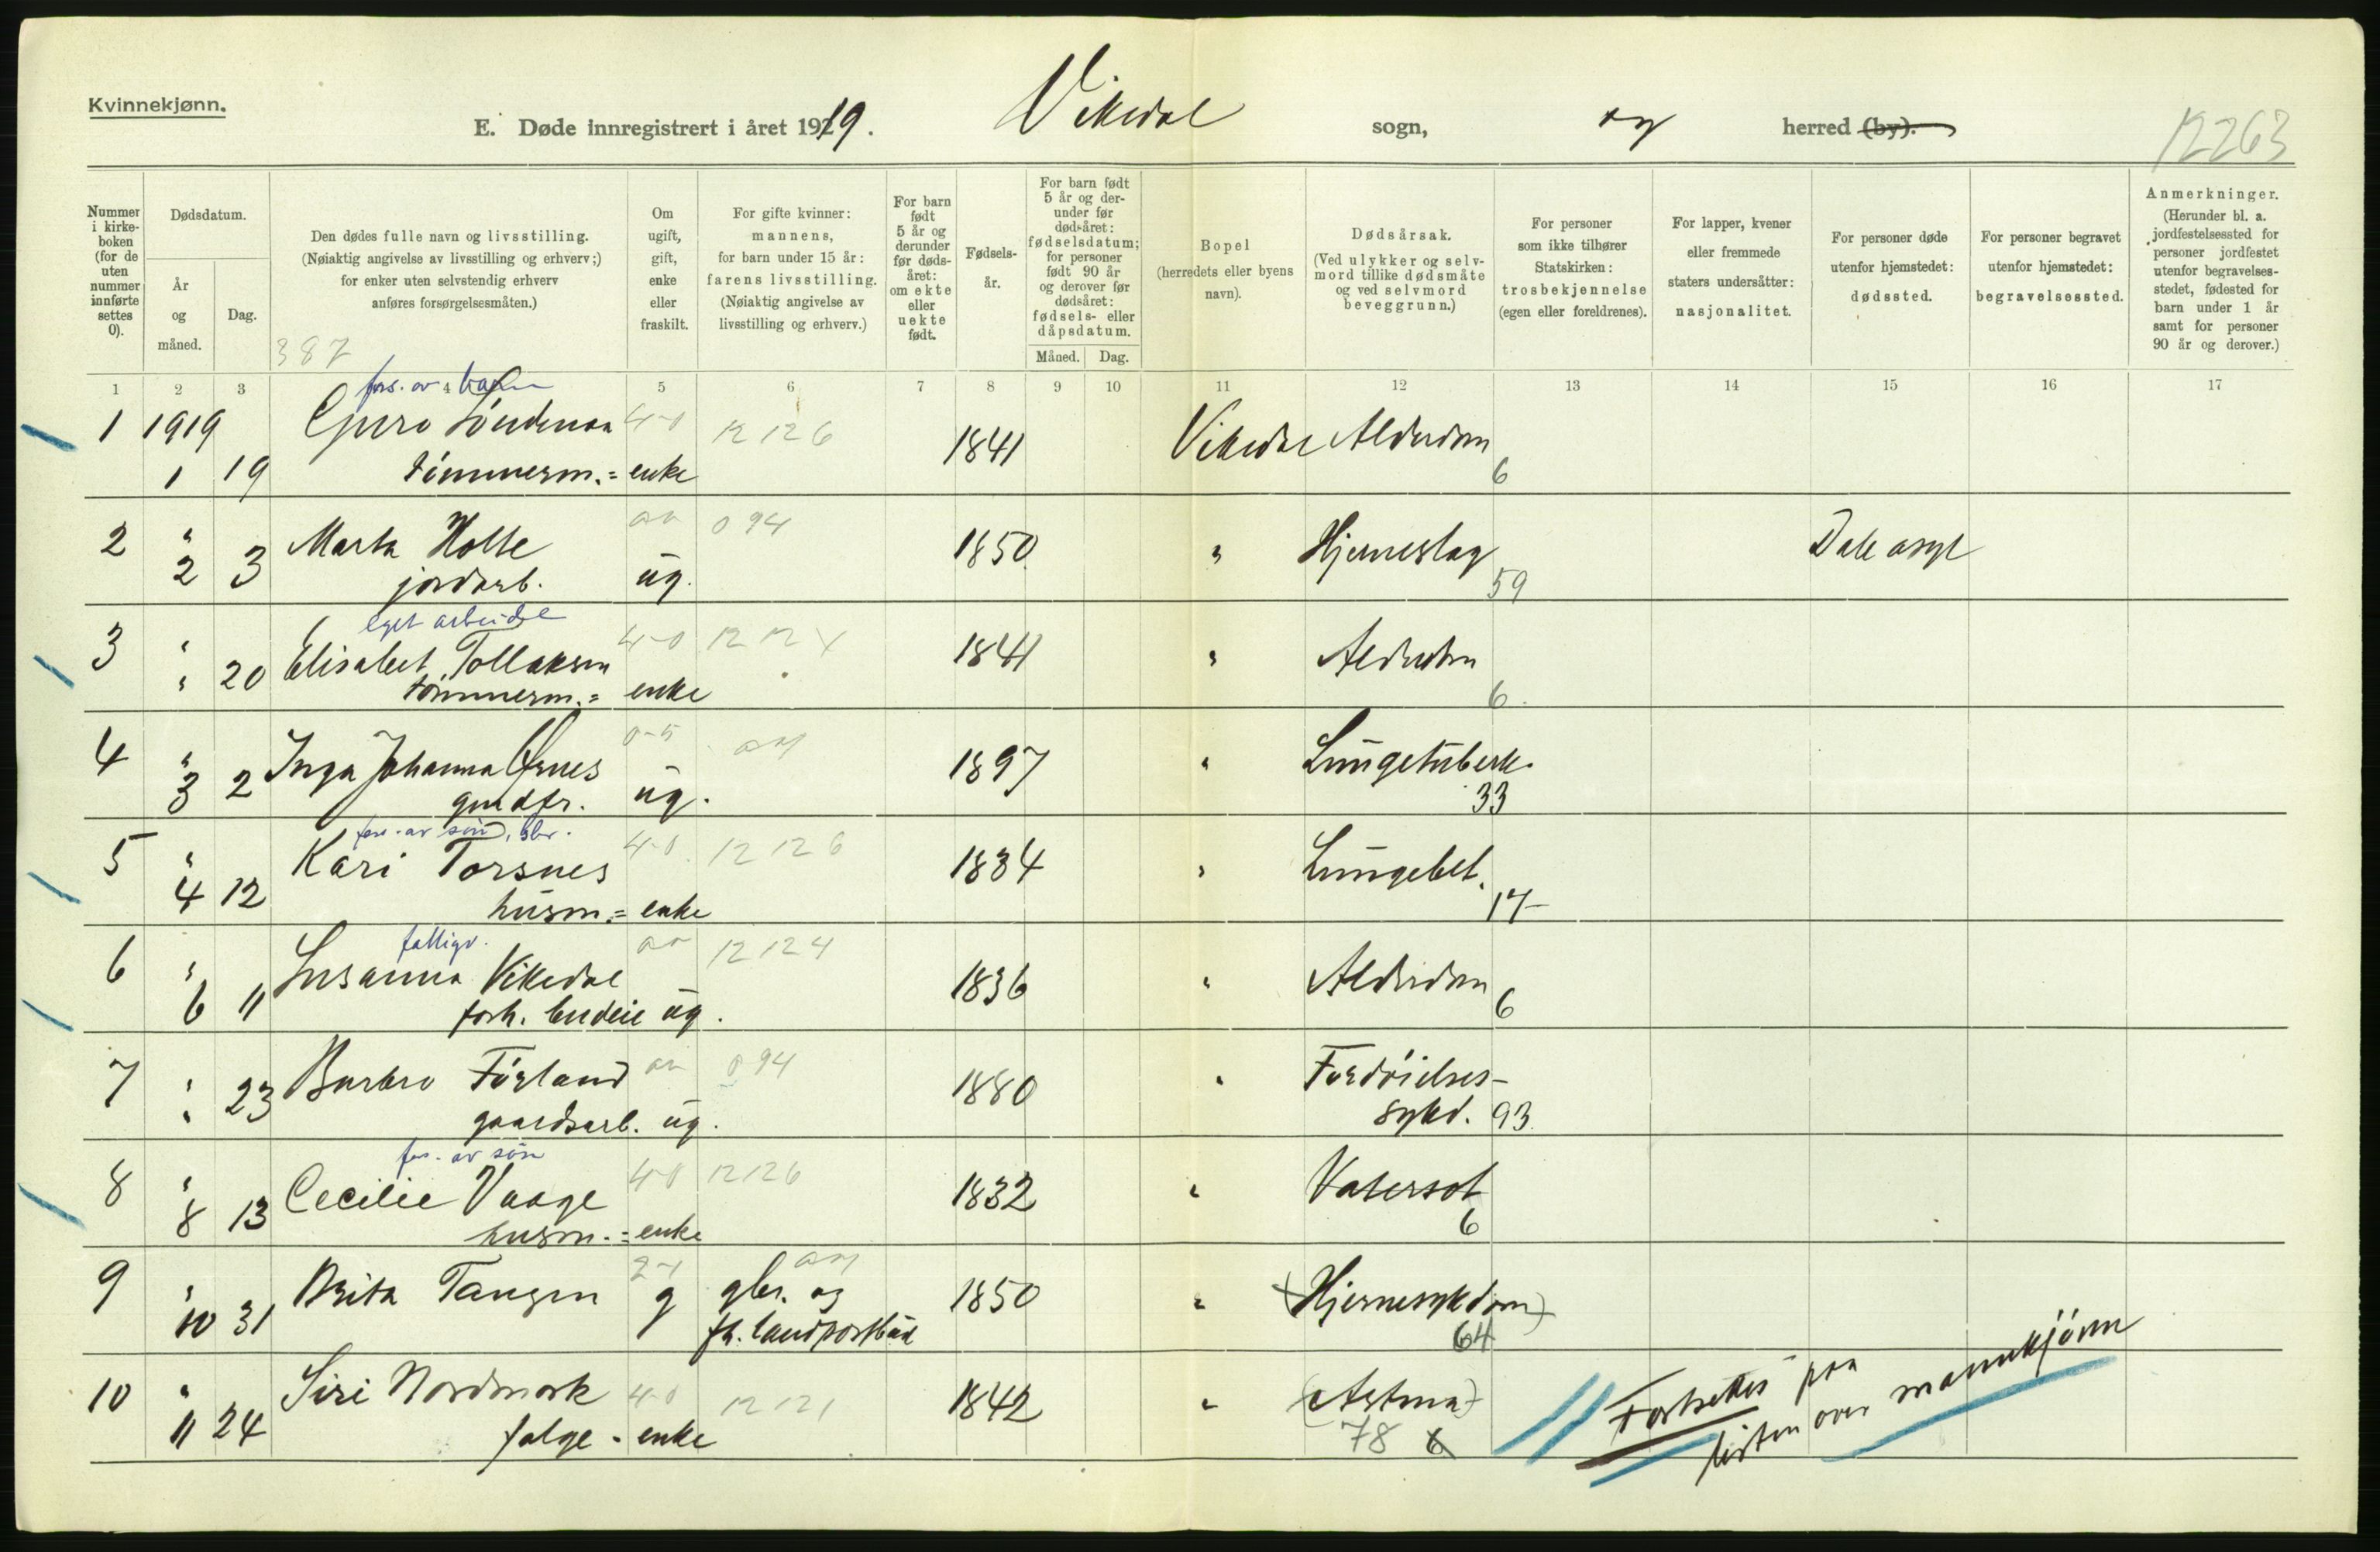 Kvinnekjønn.
E. Døde innregistrert i året 1919. Vikedal sogn, og herred (by).
12263
Nummer i kirkeboken (for de uten nummer innførte settes 0).
Dødsdatum.
År og måned.
Dag.
Den dødes fulle navn og livsstilling. (Nøiaktig angivelse av livsstilling og erhverv;) for enker uten selvstendig erhverv anføres forsørgelsesmåten.)
Om ugift, gift, enke eller fraskilt.
For gifte kvinner: mannens, for barn under 15 år: farens livsstilling. (Nøiaktig angivelse av livsstilling og erhverv.)
For barn født 5 år og derunder før dødsåret: om ekte eller uekte født.
Fødselsår.
For barn født 5 år og derunder før dødsåret: fødselsdatum; for personer født 90 år og derover før dødsåret: fødsels- eller dåpsdatum.
Måned. Dag.
Bopel (herredets eller byens navn).
Dødsårsak. (Ved ulykker og selvmord tillike dødsmåte og ved selvmord beveggrunn.)
For personer som ikke tilhører Statskirken: trosbekjennelse (egen eller foreldrenes).
For lapper, kvener eller fremmede staters undersåtter: nasjonalitet.
For personer døde utenfor hjemstedet: dødssted.
For personer begravet utenfor hjemstedet: begravelsessted.
Anmerkninger. (Herunder bl. a. jordfestelsessted for personer jordfestet utenfor begravelsesstedet, fødested for barn under 1 år samt for personer 90 år og derover.)
387
1 2 3 4 5 6 7 8 9 10 11 12 13 14 15 16 17
fors. av
1 1919 Guro 4-0 12126 1841 Vikedal Alderdom
1 19 tømmerm.= enke 6
2 " Marta Holle 094 1850 " Hjerneslag Dale asyl
2 3 jordarb. ug. 59
eget arbeide
3 " Elisabet Tollaksen 4-0 1841 " Alderdom
" 20 tømmerm.= enke 6
4 " Inga Johanna Ørnes 0-5 1897 " Lungetuberk.
3 2 ug. 33
fors. av søn,
5 " Kari Torsnes 4-0 12126 1834 " Lungebet.
4 12 husm.= enke 17
fattigv.
6 " Susanna Vikedal 12124 1836 " Alderdom
6 11 forh. budeie ug. 6
7 " Barbro Førland 094 1880 " Fordøielses-
" 23 gaardsarb. ug. sykd. 93
fors. av søn
8 " Cecilie Vaage 4-0 12126 1832 " Vatersot
8 13 husm.= enke 6
9 " Brita Tangen 2-1 g gbr. og 1850 " (Hjernesykdom)
10 31 fh. landpostbud 64
10 " Siri Nordmork 4-0 12121 1842 " (Astma)
11 24 følge - enke 78 6
Fortsettes paa
listen over mannkjønn